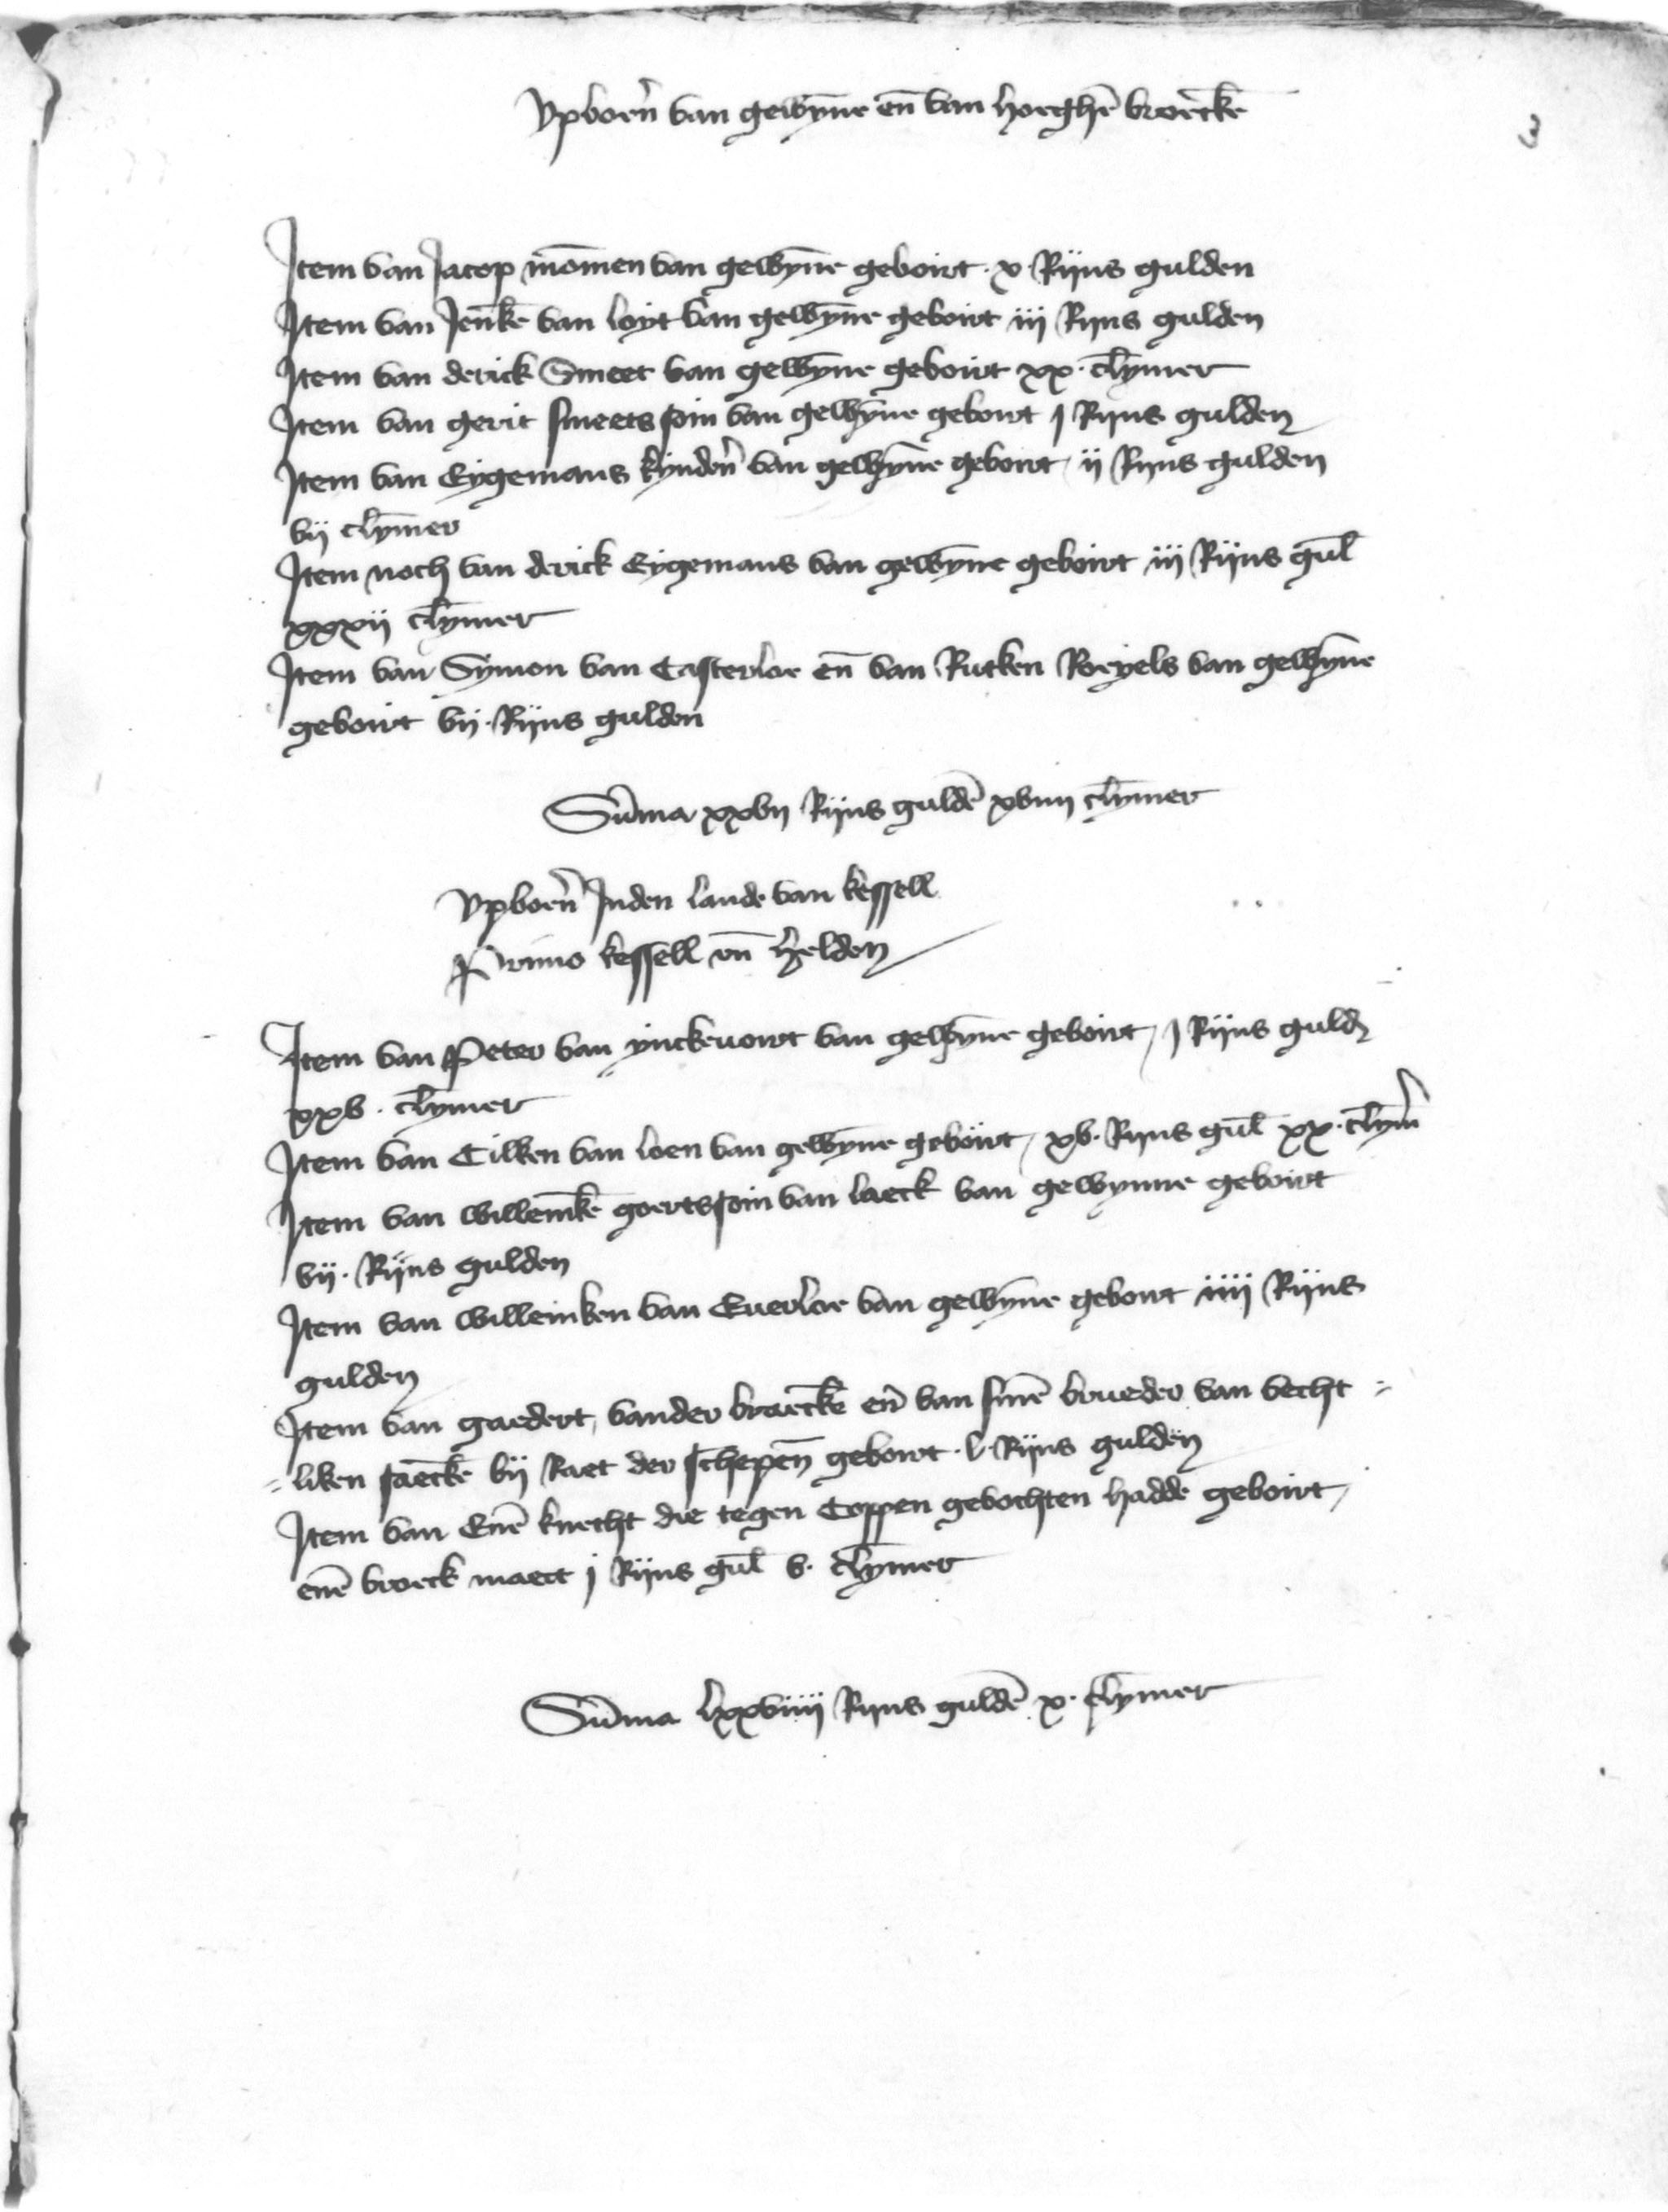 Upboern̄ van gewyne en̄ van hoeghē broecke
3
Item van Jacop mōmen van gewȳne geboirt · x Rijns gulden
Item van Jenkē van loyt van gewȳne geboirt iij Rijns gulden
Item van derick Smeet van gewȳne geboirt xx · clȳmer
Item van gerit smeets soin van gewȳne geboirt j Rijns gulden
Item van Eygemans kynden̄ van gewȳne geboirt ij Rijns gulden
vij clȳmer
Item noch van derick Eygemans van gewȳne geboirt iij Rijns gul̄
xxxij clȳmer
Item van Symon van Casterloe en̄ van Rutken Roeyels van gewȳne
geboirt vij · Rijns gulden
Sūma xxvij Rijns guldē xviiij clȳmer
Upboern̄ Inden lande van kessell
Primo kessell en̄ helden
Item van Peter van ynckevoirt van gewȳne geboirt / j Rijns guld
xxv · clȳmer
Item van Cilken van loen van gewȳne geboirt / xv · Rijns gul̄ xx · clȳm
Item van willemkē goertssoin van laeck van gewynne geboirt
vij · Rijns gulden
Item van willemken van Everloe van gewȳne geboirt iiij Rijns
gulden
Item van gaedert vander broeckē en̄ van sinē brueder van vecht =
= liken saeckē bij Raet der schepen̄ geboirt · l · Rijns gulden
Item van Enē knecht die tegen Coppen gevochten hadde geboirt /
enē broeck maect j Rijns gul̄ v · clȳmer
Sūma lxxviiij Rijns guldē x · clymer